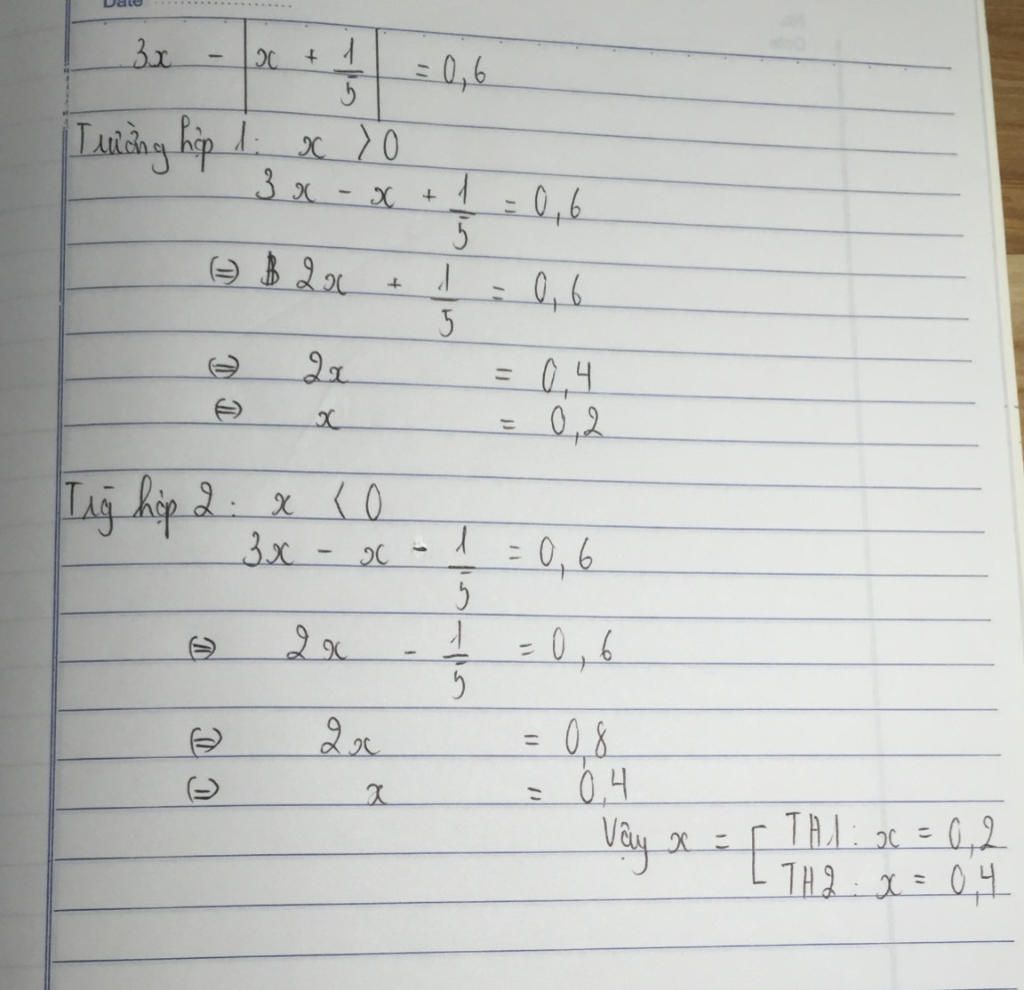 Date
3x - |x + 1/5| = 0,6
Trường hợp 1: x > 0
3x - x + 1/5 = 0,6
(=) 2x + 1/5 = 0,6
(=) 2x = 0,4
(=) x = 0,2
Trg hợp 2: x < 0
3x - x - 1/5 = 0,6
(=) 2x - 1/5 = 0,6
(=) 2x = 0,8
(=) x = 0,4
Vậy x = [ TH1: x = 0,2
TH2: x = 0,4